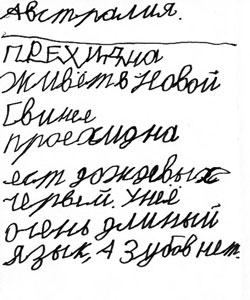 Австралия.
ПРЕХИДНА
живёт в Новой
Гвинее
проехидна
ест дождевых
червей. У неё
очень длиный
язык, А зубов нет.